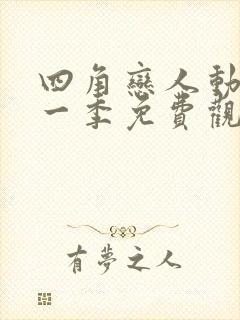 四角戀人動
一季免費觀
有夢之人